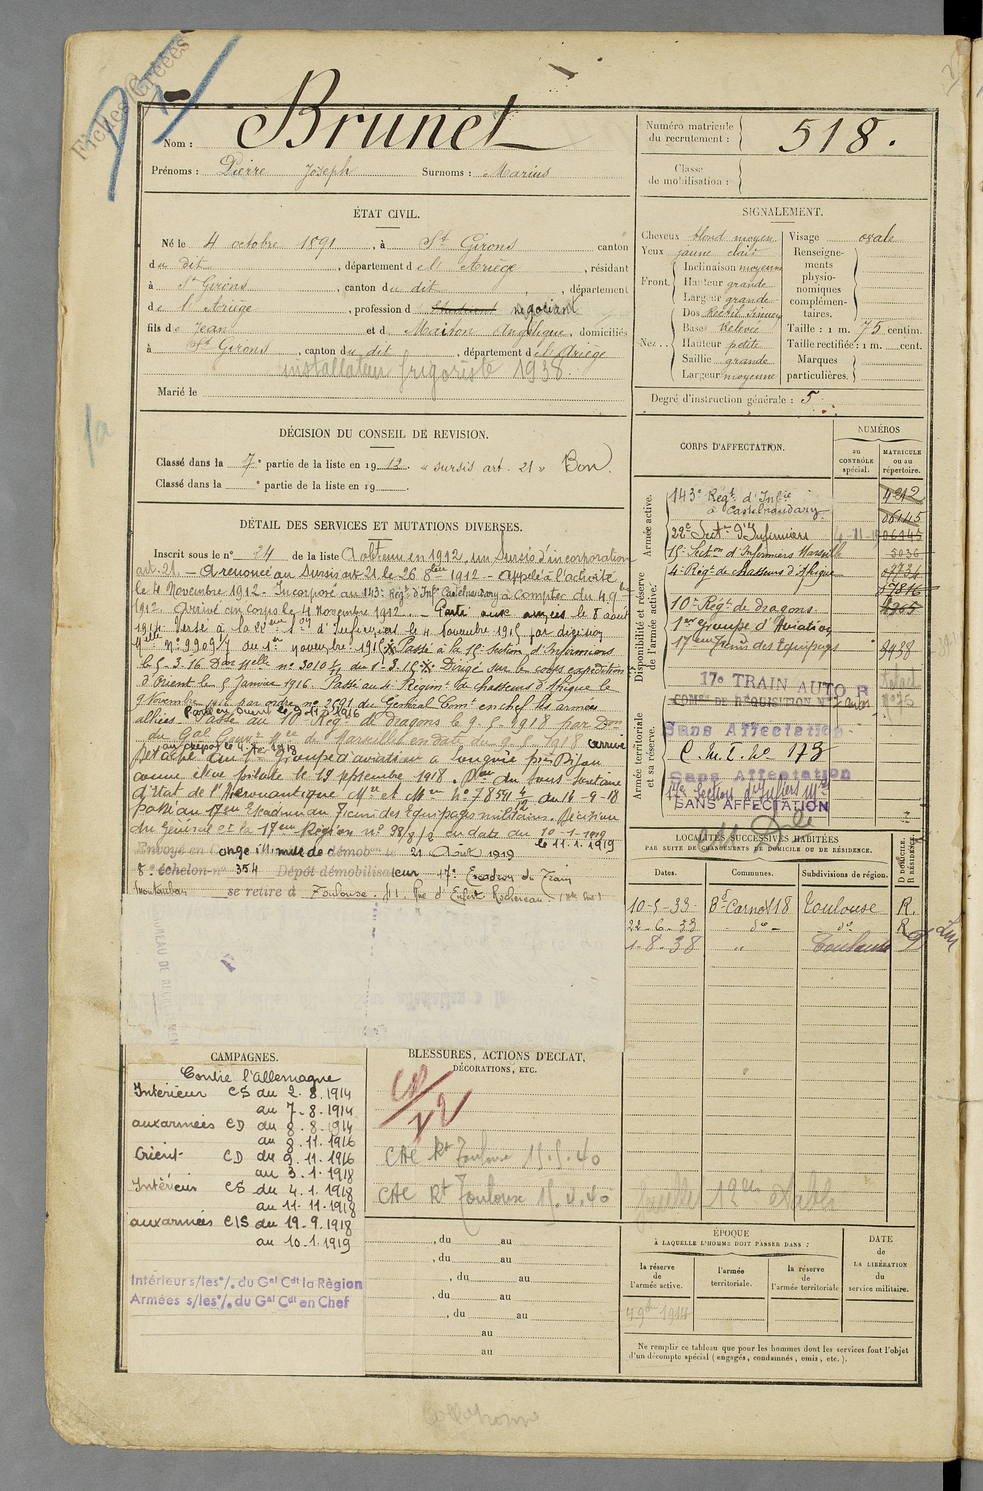 Fiches Créées
Nom : Brunet
Prénoms : Pierre Joseph Surnoms : Marius
Numéro matricule du recrutement : 518.
Classe de mobilisation :
ÉTAT CIVIL.
Né le 4 octobre 1891, à St Girons canton
du dit, département de l'Ariège, résidant
à St Girons, canton du dit, département
de l'Ariège, profession d étudiant négociant
fils de Jean et de Maison Angélique, domiciliés
à St Girons, canton du dit, département de l'Ariège
installateur frigoriste 1938.
Marié le
SIGNALEMENT.
Cheveux blond moyen
Yeux jaune clair
Front Inclinaison moyenne
Hauteur grande
Largeur grande
Nez Dos Rectil. Sinueux
Base Relevée
Hauteur petite
Saillie grande
Largeur moyenne
Visage ovale
Renseignements physionomiques complémentaires.
Taille : 1 m. 75 centim.
Taille rectifiée : 1 m. cent.
Marques particulières.
Degré d'instruction générale : 5
DÉCISION DU CONSEIL DE REVISION.
Classé dans la 7e partie de la liste en 1912. « sursis art. 21 » Bon.
Classé dans la e partie de la liste en 19
DÉTAIL DES SERVICES ET MUTATIONS DIVERSES.
Inscrit sous le n° 24 de la liste A obtenu en 1912, un Sursis d'incorporation
art. 21. – A renoncé au Sursis art 21 le 26 8bre 1912 – Appelé à l'activité
le 4 Novembre 1912 – Incorporé au 143e Régt d'Infie Castelnaudary à compter du 4 9bre
1912. Arrivé au corps le 4 Novembre 1912. – Parti aux armées le 8 août
1914. Versé à la 22eme Son d'Infirmiers le 4 Novembre 1915 par décision
Mielle n° 9909 3/7 du 1er novembre 1915. Passé à la 15 Section d'Infirmiers
le 5.3.16 Don Melle n° 3010 du 1er 3.15. Dirigé sur le corps expédition
d'Orient le 5 Janvier 1916. Passé au 4e Régimt de chasseurs d'Afrique le
9 Novembre 1916 par ordre n° 2691 du Général Comt en chef les armées
alliées. Parti en Orient le 9 Nov 1916
Passé au 10e Rég. de Dragons le 9.5.1918 par Don
du Gal Gouvr Mre de Marseille en date du 9.5.1918 arrivé
au dépôt le 4.1.1919
Détaché au 1er Groupe d'aviation à Longvic près Dijon
comme élève pilote le 19 septembre 1918. Don du Sous-Secrétaire
d'Etat de l'Aéronautique Mre et Mme N° 7854 4/12 du 16-9-18
passé au 17eme Escadron du Train des Equipages militaires. Décision
du Général Ct la 17eme Région n° 98/8/2 en date du 10-1-1919
le 11.1.1919
Envoyé en Congé illimité de démobon le 21 Août 1919
8e échelon n° 354 Dépôt démobilisateur 17e Escadron du Train
Montauban se retire à Toulouse. 41 Rue d'Enfert Rochereau
CORPS D'AFFECTATION.
NUMÉROS
au CONTRÔLE spécial.
MATRICULE ou au RÉPERTOIRE.
Armée active.
Disponibilité et réserve de l'armée active.
Armée territoriale et sa réserve.
143e Régt d'Infie à Castelnaudary. 4212
06145
22e Sect. d'Infirmiers 4-11-15 06445
15e Section d'Infirmiers Marseille 5036
4e Régt de chasseurs d'Afrique
10e Régt de dragons.
1er Groupe d'Aviation
17eme Train des Equipages 9438
17e TRAIN AUTO R
COMon DE RÉQUISITION
Sans Affectation
C.M.I. No 173
Sans Affectation
17e Section d'Infiers Mres
SANS AFFECTATION
LOCALITÉS SUCCESSIVES HABITÉES
PAR SUITE DE CHANGEMENTS DE DOMICILE OU DE RÉSIDENCE.
Dates. Communes. Subdivisions de région. D DOMICILE. R RÉSIDENCE.
10-5-33 Bd Carnot 18 Toulouse R.
22-6-33 - do - do R
1-8-38 " Toulouse D
CAMPAGNES.
Contre l'Allemagne
Intérieur CS du 2.8.1914
au 7.8.1914
aux armées CD du 8.8.1914
au 8.11.1916
Orient CD du 9.11.1916
au 3.1.1918
Intérieur CS du 4.1.1918
au 11.11.1918
aux armées CIS du 19.9.1918
au 10.1.1919
Intérieur s/les °/. du Gal Cdt la Règion
Armées s/les °/. du Gal Cdt en Chef
BLESSURES, ACTIONS D'ÉCLAT,
DÉCORATIONS, ETC.
CAC Rt Toulouse 15.5.40
CAC Rt Toulouse 15.4.40
, du au
, du au
, du au
, du au
, du au
au
au
ÉPOQUE
À LAQUELLE L'HOMME DOIT PASSER DANS :
la réserve de l'armée active.
l'armée territoriale.
la réserve de l'armée territoriale
DATE de LA LIBÉRATION du service militaire.
1914
Ne remplir ce tableau que pour les hommes dont les services font l'objet
d'un décompte spécial (engagés, condamnés, omis, etc.).